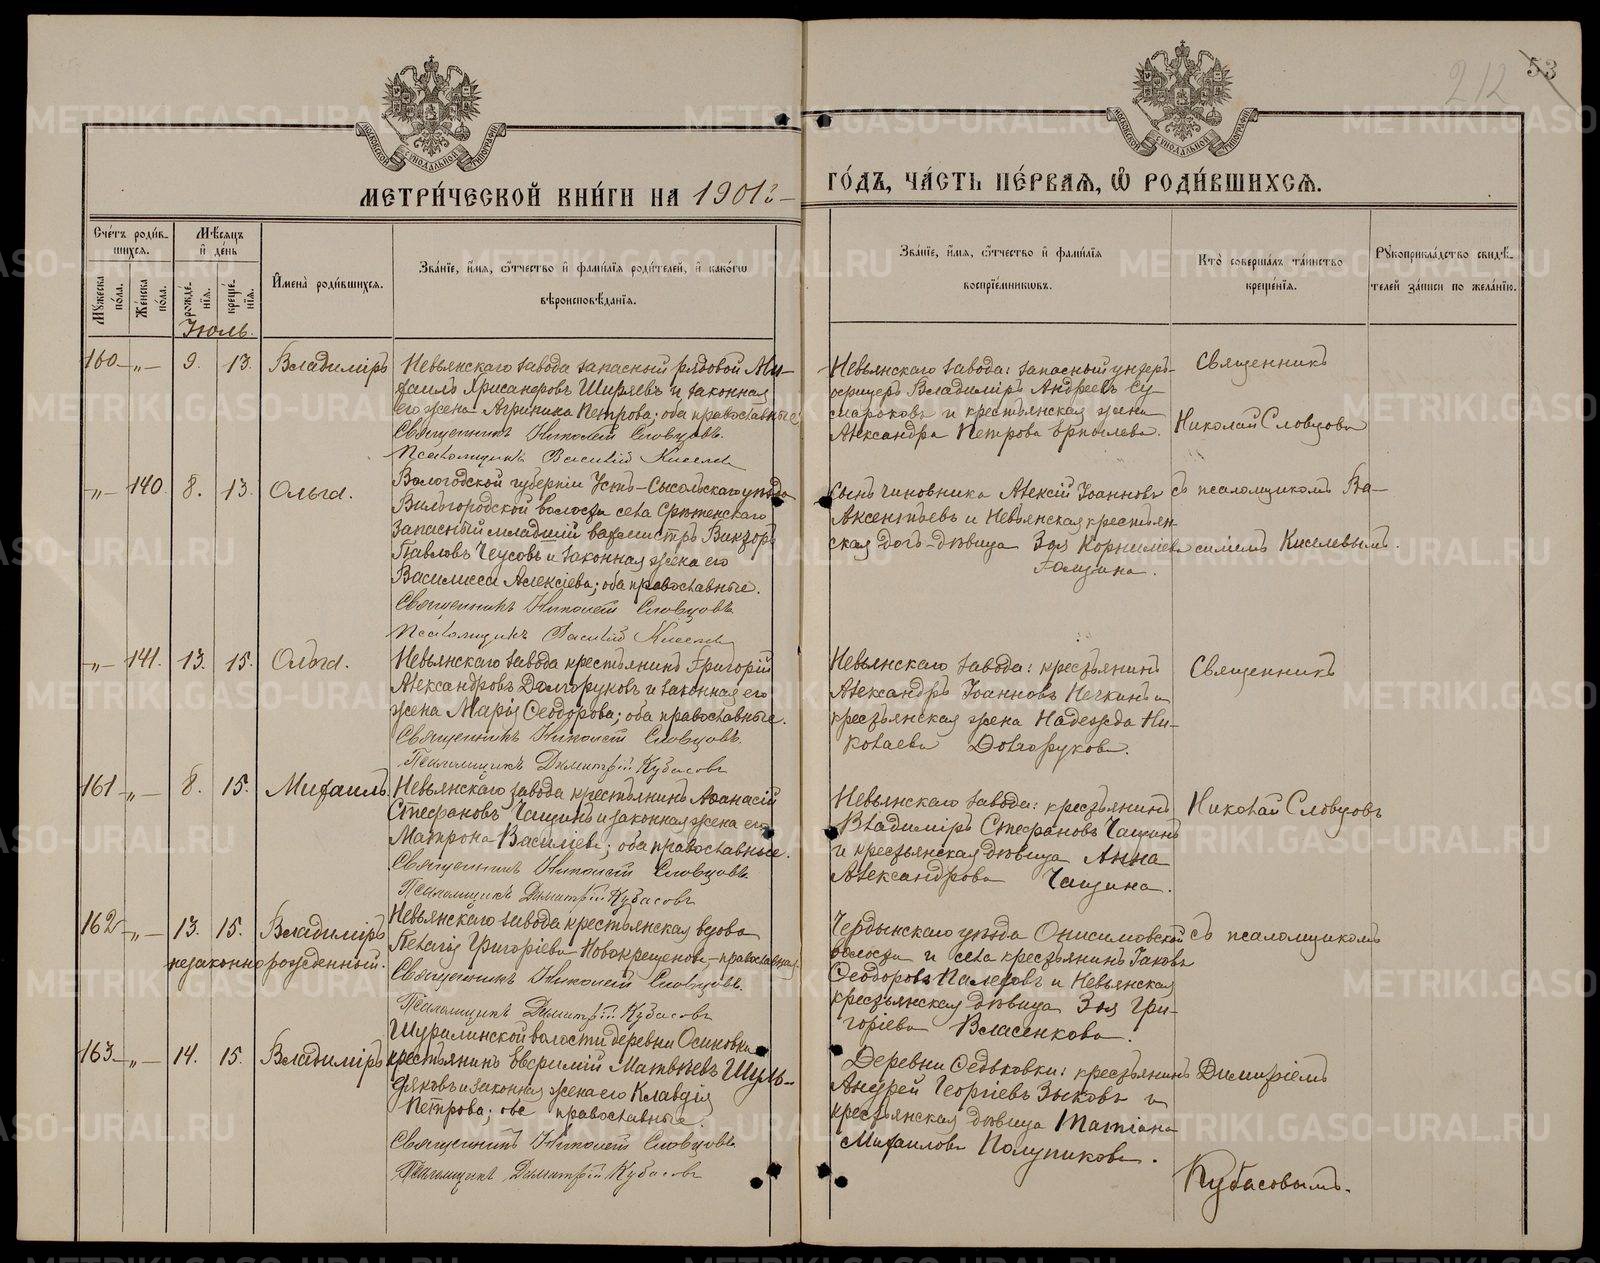 212 53
МОСКОВСКОЙ СѴНОДАЛЬНОЙ ТИПОГРАФІИ
МОСКОВСКОЙ СѴНОДАЛЬНОЙ ТИПОГРАФІИ
МЕТРИ́ЧЕСКОЙ КНИ́ГИ НА 1901 г.
ГО́ДЪ, ЧА́СТЬ ПЕ́РВАѦ, Ѽ РОДИ́ВШИХСѦ.
Сче́тъ роди́вшихся.
Му́жеска по́ла.
Же́нска по́ла.
Мѣ́сяцъ и де́нь
рожде́нія.
креще́нія.
Имена̀ роди́вшихся.
Зва́ніе, и́мя, о́тчество и фами́лія роди́телей, и како́гѡ
вѣроисповѣ́данія.
Зва́ніе, и́мя, о́тчество и фами́лія
воспріе́мниковъ.
Кто̀ соверша́лъ та́инство
креще́нія.
Рꙋкоприкла́дство свидѣ́телей за́писи по жела́нію.
Іюль.
160 -„- 9. 13. Владиміръ
Невьянскаго завода запасный рядовой Ми-
хаилъ Хрисанфовъ Ширяевъ и законная
его жена Агрипина Петрова; оба православные
Священникъ Николай Словцовъ.
Псаломщикъ Василій Киселевъ
Невьянскаго завода: запасный унтеръ-
офицеръ Владиміръ Андреевъ Су-
мароковъ и крестьянская жена
Александра Петрова
Священникъ
Николай Словцовъ
-„- 140 8. 13. Ольга.
Вологодской губерніи Усть-Сысольскаго уѣзда
Вильгородской волости села Срѣтенскаго
запасный младшій вахмистръ Викторъ
Павловъ Чеусовъ и законная жена его
Василисса Алексіева; оба православные.
Священникъ Николай Словцовъ
Псаломщикъ Василій Киселевъ
Сынъ чиновника Алексій Іоанновъ
Аксентьевъ и Невьянская крестьян-
ская дочь-дѣвица Зоя Корниліева
Голицина.
съ псаломщикомъ Ва-
силіемъ Киселевымъ.
-„- 141. 13. 15. Ольга.
Невьянскаго завода крестьянинъ Григорій
Александровъ Долгоруковъ и законная его
жена Марія Ѳеодорова; оба православные.
Священникъ Николай Словцовъ.
Псаломщикъ Димитрій Кубасовъ
Невьянскаго завода: крестьянинъ
Александръ Іоанновъ Нечкинъ и
крестьянская жена Надежда Ни-
колаева Долгорукова.
Священникъ
161 -„- 8. 15. Михаилъ.
Невьянскаго завода крестьянинъ Аѳанасій
Стефановъ Чащинъ и законная жена его
Матрона Василіева; оба православные.
Священникъ Николай Словцовъ
Псаломщикъ Димитрій Кубасовъ
Невьянскаго завода: крестьянинъ
Владиміръ Стефановъ Чащинъ
и крестьянская дѣвица Анна
Александрова Чащина.
Николай Словцовъ
162 -„- 13. 15. Владиміръ
незаконнорожденный.
Невьянскаго завода крестьянская вдова
Пелагія Григоріева Новокрещенова - православная.
Священникъ Николай Словцовъ.
Псаломщикъ Димитрій Кубасовъ
Чердынскаго уѣзда Онисимовской
волости и села крестьянинъ Іаковъ
Ѳеодоровъ и Невьянская
крестьянская дѣвица Зоя Гри-
горіева Власенкова.
съ псаломщикомъ
163 -„- 14. 15. Владиміръ
Шуралинской волости деревни Осиновки
крестьянинъ Евфимій Матвѣевъ Шуль-
ляковъ и законная жена его Клавдія
Петрова; оба православные.
Священникъ Николай Словцовъ
Псаломщикъ Димитрій Кубасовъ
Деревни Федьковки: крестьянинъ
Андрей Георгіевъ Зыковъ и
крестьянская дѣвица Татіана
Михаилова Полупикова.
Димитріемъ
Кубасовымъ.
METRIKI.GASO-URAL.RU